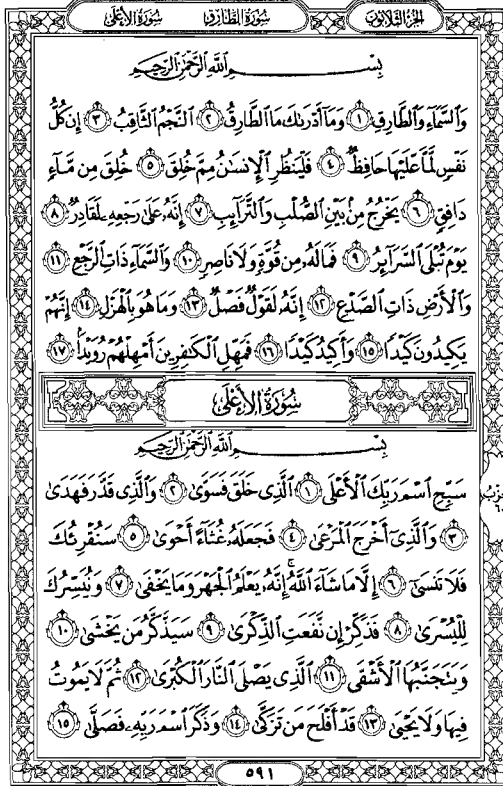 الجزء الثلاثون سورة الطارق سورة الأعلى
بِسْمِ اللَّهِ الرَّحْمَٰنِ الرَّحِيمِ
وَٱلسَّمَآءِ وَٱلطَّارِقِ ١ وَمَآ أَدْرَىٰكَ مَا ٱلطَّارِقُ ٢ ٱلنَّجْمُ ٱلثَّاقِبُ ٣ إِن كُلُّ
نَفْسٍ لَّمَّا عَلَيْهَا حَافِظٌ ٤ فَلْيَنظُرِ ٱلْإِنسَٰنُ مِمَّ خُلِقَ ٥ خُلِقَ مِن مَّآءٍ
دَافِقٍ ٦ يَخْرُجُ مِنۢ بَيْنِ ٱلصُّلْبِ وَٱلتَّرَآئِبِ ٧ إِنَّهُۥ عَلَىٰ رَجْعِهِۦ لَقَادِرٌ ٨
يَوْمَ تُبْلَى ٱلسَّرَآئِرُ ٩ فَمَا لَهُۥ مِن قُوَّةٍ وَلَا نَاصِرٍ ١٠ وَٱلسَّمَآءِ ذَاتِ ٱلرَّجْعِ ١١
وَٱلْأَرْضِ ذَاتِ ٱلصَّدْعِ ١٢ إِنَّهُۥ لَقَوْلٌ فَصْلٌ ١٣ وَمَا هُوَ بِٱلْهَزْلِ ١٤ إِنَّهُمْ
يَكِيدُونَ كَيْدًا ١٥ وَأَكِيدُ كَيْدًا ١٦ فَمَهِّلِ ٱلْكَٰفِرِينَ أَمْهِلْهُمْ رُوَيْدًۢا ١٧
سُورَةُ الأَعْلَى
بِسْمِ اللَّهِ الرَّحْمَٰنِ الرَّحِيمِ
سَبِّحِ ٱسْمَ رَبِّكَ ٱلْأَعْلَى ١ ٱلَّذِى خَلَقَ فَسَوَّىٰ ٢ وَٱلَّذِى قَدَّرَ فَهَدَىٰ
٣ وَٱلَّذِىٓ أَخْرَجَ ٱلْمَرْعَىٰ ٤ فَجَعَلَهُۥ غُثَآءً أَحْوَىٰ ٥ سَنُقْرِئُكَ
فَلَا تَنسَىٰٓ ٦ إِلَّا مَا شَآءَ ٱللَّهُ ۚ إِنَّهُۥ يَعْلَمُ ٱلْجَهْرَ وَمَا يَخْفَىٰ ٧ وَنُيَسِّرُكَ
لِلْيُسْرَىٰ ٨ فَذَكِّرْ إِن نَّفَعَتِ ٱلذِّكْرَىٰ ٩ سَيَذَّكَّرُ مَن يَخْشَىٰ ١٠
وَيَتَجَنَّبُهَا ٱلْأَشْقَى ١١ ٱلَّذِى يَصْلَى ٱلنَّارَ ٱلْكُبْرَىٰ ١٢ ثُمَّ لَا يَمُوتُ
فِيهَا وَلَا يَحْيَىٰ ١٣ قَدْ أَفْلَحَ مَن تَزَكَّىٰ ١٤ وَذَكَرَ ٱسْمَ رَبِّهِۦ فَصَلَّىٰ ١٥
٥٩١